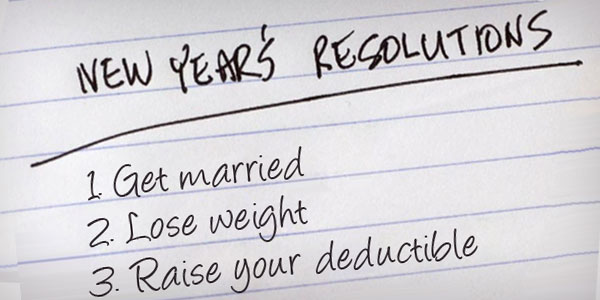 NEW YEAR'S RESOLUTIONS
1. Get married
2. Lose weight
3. Raise your deductible